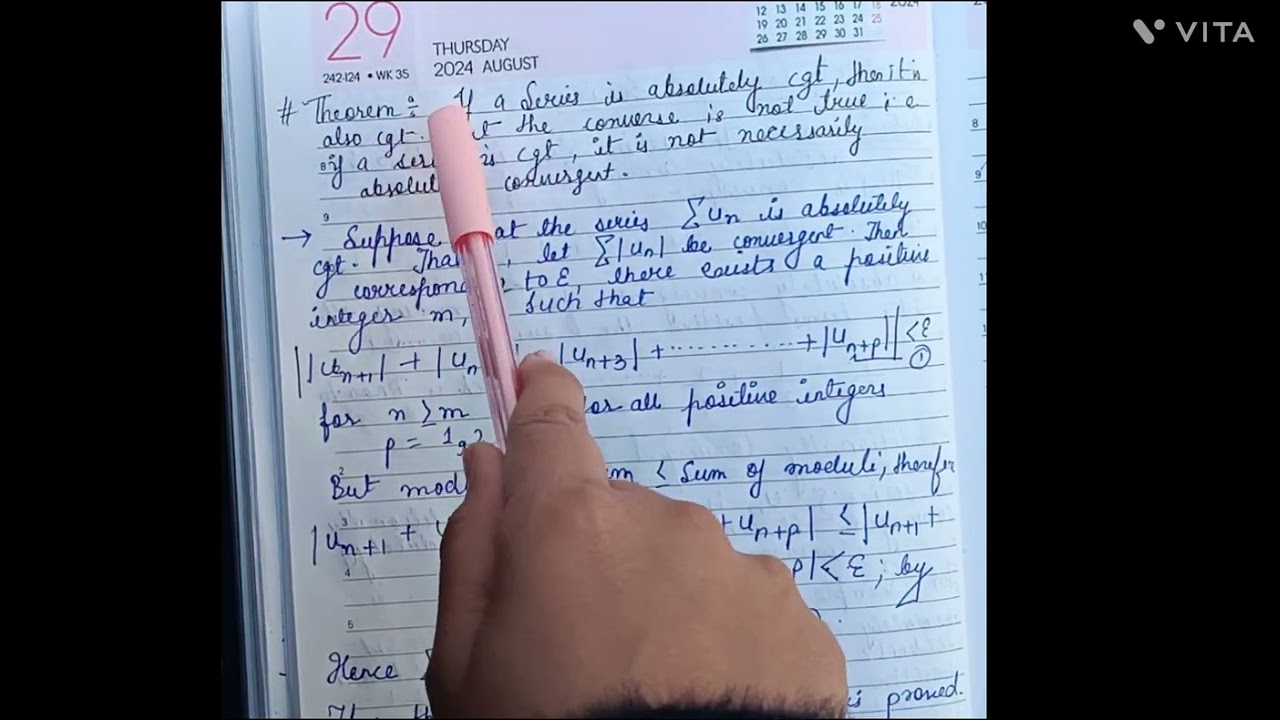 29
THURSDAY
2024 AUGUST
242-124 • WK 35
12 13 14 15 16 17 18
19 20 21 22 23 24 25
26 27 28 29 30 31
VITA
# Theorem : If a Series is absolutely cgt, then it is
also cgt. the converse is not true i.e
if a is cgt, it is not necessarily
convergent.
→ Suppose at the series ∑un is absolutely
cgt. let ∑|un| be convergent. Then
to ε, there exists a positive
integer m, such that
||un+1| + |un |un+3| + ............ + |un+p|| < ε
①
for n ≥ m for all positive integers
p = 1,2
But ≤ Sum of moduli, therefor
|un+1 + + un+p| ≤ |un+1 +
p| < ε ; by
Hence
is proved.
8
9
10
11
9
2
3
4
5